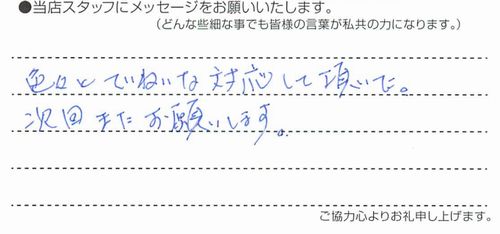 ●当店スタッフにメッセージをお願いいたします。
(どんな些細な事でも皆様の言葉が私共の力になります。)
色々とていねいな対応して頂いた。
次回またお願いします。
ご協力心よりお礼申し上げます。